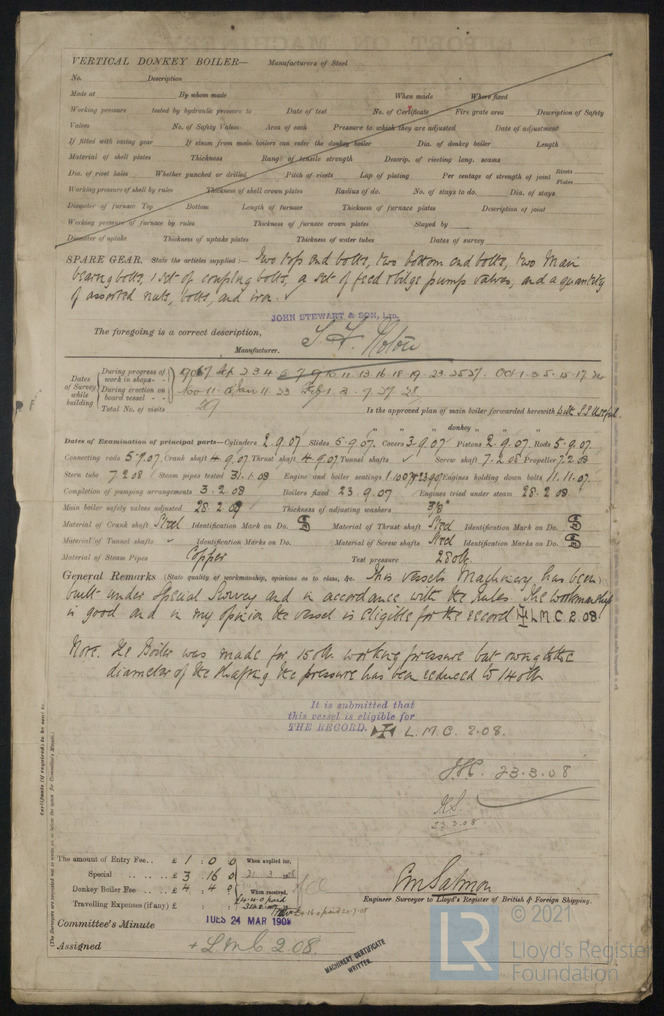 VERTICAL DONKEY BOILER— Manufacturers of Steel
No. Description
Made at By whom made When made Where fixed
Working pressure tested by hydraulic pressure to Date of test No. of Certificate Fire grate area Description of Safety
Valves No. of Safety Valves Area of each Pressure to which they are adjusted Date of adjustment
If fitted with easing gear If steam from main boilers can enter the donkey boiler Dia. of donkey boiler Length
Material of shell plates Thickness Range of tensile strength Descrip. of riveting long. seams
Dia. of rivet holes Whether punched or drilled Pitch of rivets Lap of plating Per centage of strength of joint Rivets Plates
Working pressure of shell by rules Thickness of shell crown plates Radius of do. No. of stays to do. Dia. of stays
Diameter of furnace Top Bottom Length of furnace Thickness of furnace plates Description of joint
Working pressure of furnace by rules Thickness of furnace crown plates Stayed by
Diameter of uptake Thickness of uptake plates Thickness of water tubes Dates of survey
SPARE GEAR. State the articles supplied:— Two top end bolts, two bottom end bolts, two main
bearing bolts, 1 set of coupling bolts, a set of feed & bilge pump valves, and a quantity
of assorted nuts, bolts, and iron.
JOHN STEWART & SON, Ltd.
The foregoing is a correct description,
Manufacturer.
Dates of Survey while building
During progress of work in shops- - 1907 Sep 2 3 4 11 13 16 18 19 23 25 27 Oct 1 3 5 15 17
During erection on board vessel - - - Nov 11 Jan 11 23 Feb 1 3 7 27 28
Total No. of visits 29
Is the approved plan of main boiler forwarded herewith
donkey " " "
Dates of Examination of principal parts—Cylinders 2.9.07 Slides 5.9.07 Covers 3.9.07 Pistons 2.9.07 Rods 5.9.07
Connecting rods 5.9.07 Crank shaft 4.9.07 Thrust shaft 4.9.07 Tunnel shafts ✓ Screw shaft 7.2.08 Propeller 7.2.08
Stern tube 7.2.08 Steam pipes tested 31.1.08 Engine and boiler seatings Engines holding down bolts 11.11.07
Completion of pumping arrangements 3.2.08 Boilers fixed 23.9.07 Engines tried under steam 28.2.08
Main boiler safety valves adjusted 28.2.08 Thickness of adjusting washers 3/8"
Material of Crank shaft Steel Identification Mark on Do. Material of Thrust shaft Steel Identification Mark on Do.
Material of Tunnel shafts ✓ Identification Marks on Do. Material of Screw shafts Steel Identification Marks on Do.
Material of Steam Pipes Copper Test pressure 280 lb
General Remarks (State quality of workmanship, opinions as to class, &c. This vessels Machinery has been
built under Special Survey and in accordance with the Rules The workmanship
is good and in my opinion the vessel is eligible for the record ✠ L.M.C. 2.08
Note. The Boiler was made for 150 lb working pressure but owing to the
diameter of the shafting the pressure has been reduced to 140 lb
It is submitted that
this vessel is eligible for
THE RECORD. ✠ L.M.C. 2.08.
23.3.08
23.3.08
Certificate (if required) to be sent to
(The Surveyors are requested not to write on or below the space for Committee's Minute.)
The amount of Entry Fee.. £ 1 : 0 : 0 When applied for,
Special .. .. .. £ 3 : 16 : 0 21.3.08
Donkey Boiler Fee .. .. £ 4 : 4 : 0 When received,
Travelling Expenses (if any) £ : :
Engineer Surveyor to Lloyd's Register of British & Foreign Shipping.
Committee's Minute TUES 24 MAR 1908
Assigned + L.M.C. 2.08.
MACHINERY CERTIFICATE
WRITTEN.
© 2021
LR
Lloyd's Register
Foundation